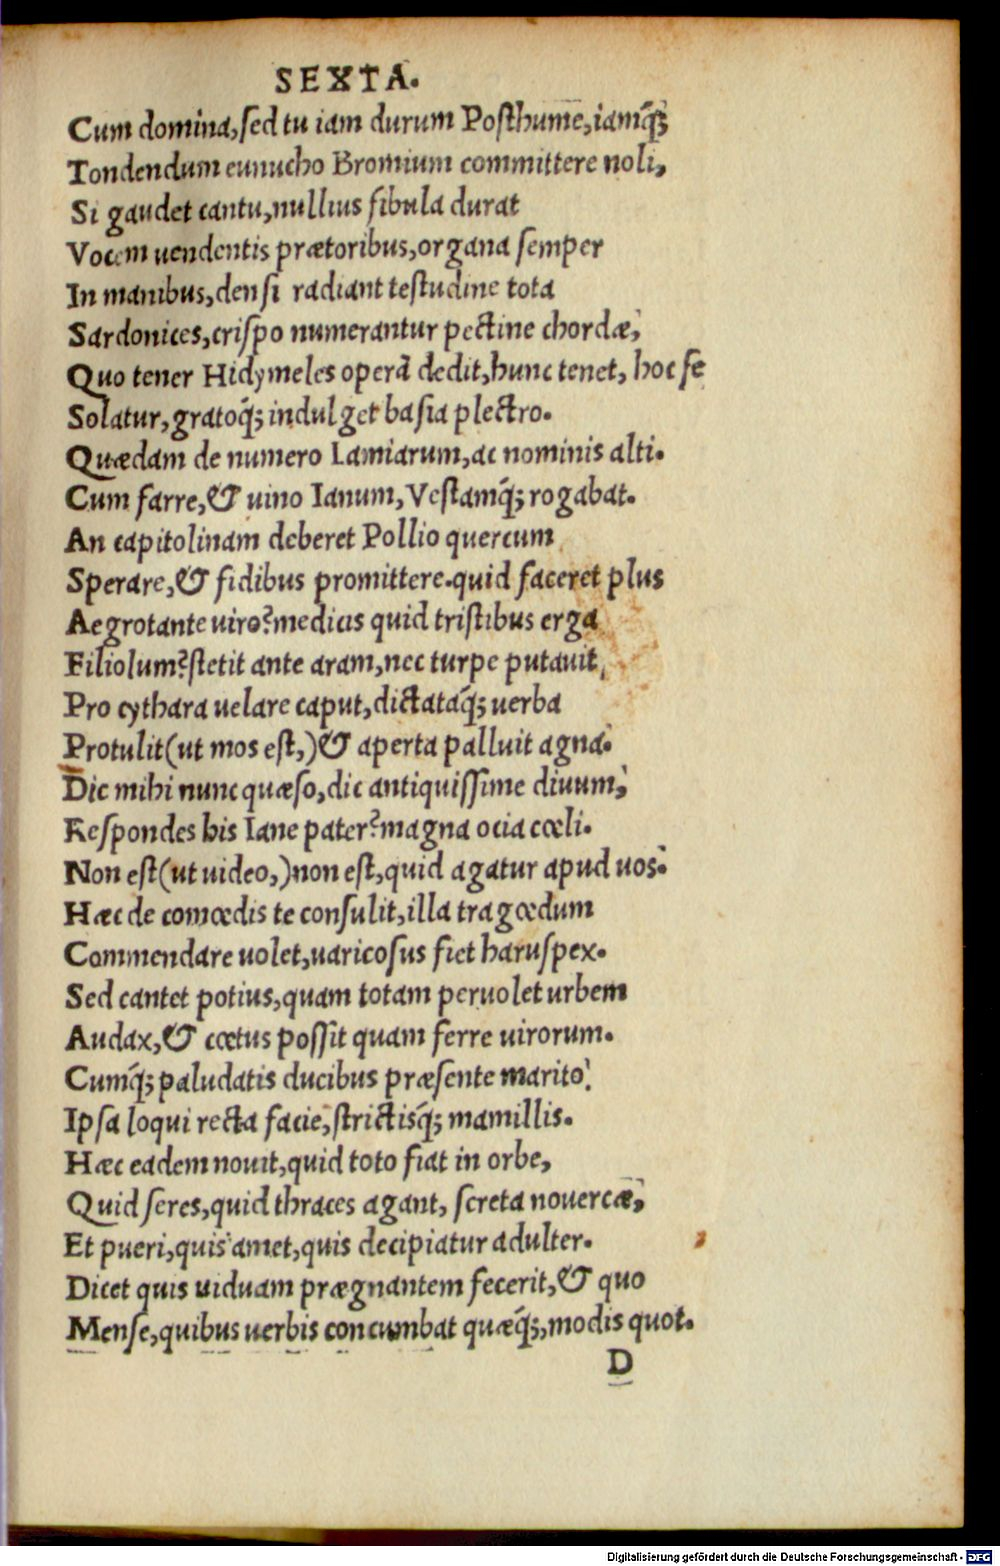 SEXTA.
Cum domina,sed tu iam durum Posthume,iamq́;
Tondendum eunucho Bromium committere noli,
Si gaudet cantu,nullius fibula durat
Vocem uendentis prætoribus,organa semper
In manibus,densi radiant testudine tota
Sardonices,crispo numerantur pectine chordæ,
Quo tener Hidymeles operā dedit,hunc tenet, hoc se
Solatur,gratoq́; indulget basia plectro.
Quædam de numero Lamiarum,ac nominis alti.
Cum farre,& uino Ianum,Vestamq́; rogabat.
An capitolinam deberet Pollio quercum
Sperare,& fidibus promittere.quid faceret plus
Aegrotante uiro?medicis quid tristibus erga
Filiolum?stetit ante aram,nec turpe putauit,
Pro cythara uelare caput,dictataq́; uerba
Protulit(ut mos est,)& aperta palluit agna.
Dic mihi nunc quæso,dic antiquissime diuum,
Respondes his Iane pater?magna ocia cœli.
Non est(ut uideo,)non est,quid agatur apud uos.
Hæc de comœdis te consulit,illa tragœdum
Commendare uolet,uaricosus fiet haruspex.
Sed cantet potius,quam totam peruolet urbem
Audax,& cœtus possit quam ferre uirorum.
Cumq́; paludatis ducibus præsente marito,
Ipsa loqui recta facie,strictisq́; mamillis.
Hæc eadem nouit,quid toto fiat in orbe,
Quid seres,quid thraces agant, screta nouercæ,
Et pueri,quis amet,quis decipiatur adulter.
Dicet quis uiduam prægnantem fecerit,& quo
Mense,quibus uerbis concumbat quæq́;,modis quot.
D
Digitalisierung gefördert durch die Deutsche Forschungsgemeinschaft - DFG